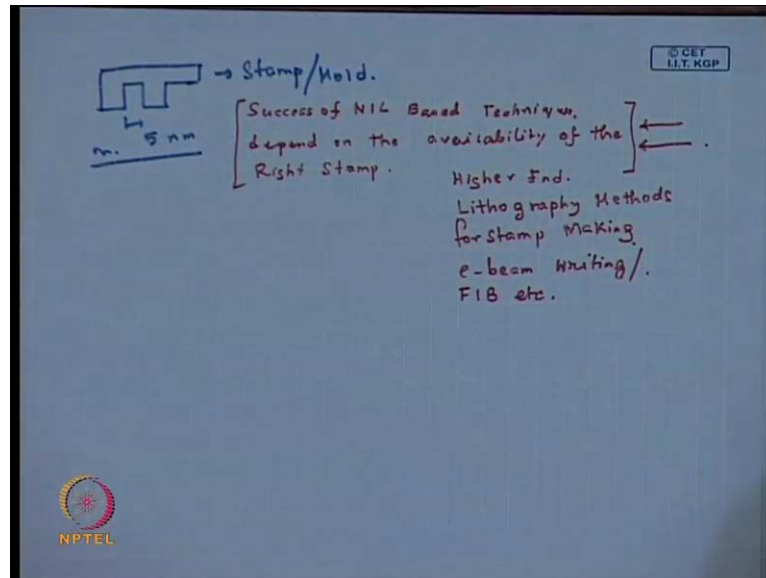 → Stamp/Mold.
© CET
I.I.T. KGP
Success of NIL Based Techniques,
depend on the availability of the
Right Stamp.
5 nm
m.
Higher End.
Lithography Methods
for stamp Making
e-beam Writing/.
FIB etc.
NPTEL